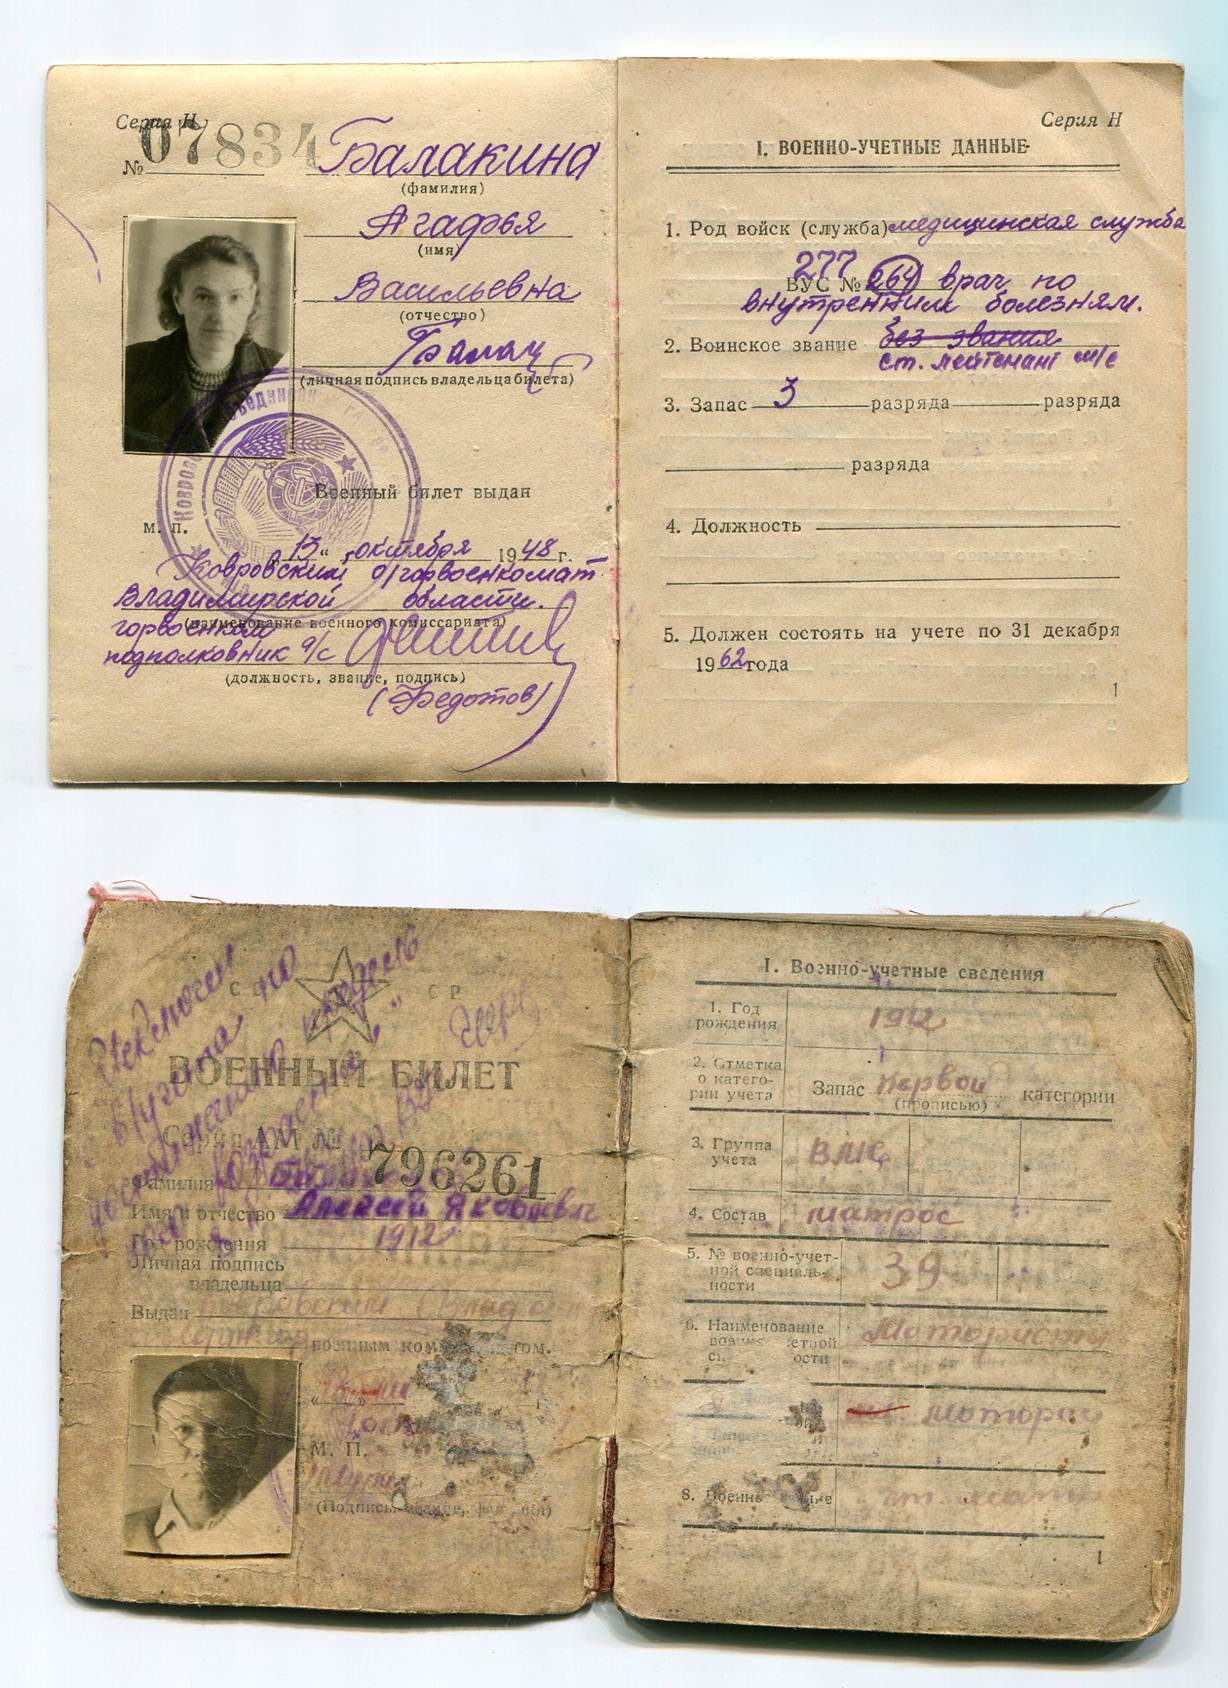 Серия Н
№ 07834
Балакина
(фамилия)
Агафья
(имя)
Васильевна
(отчество)
Балак
(личная подпись владельца билета)
Военный билет выдан
М. П.
„13“ октября 1948 г.
Ковровским о/горвоенкомат
Владимирской области.
(наименование военного комиссариата)
горвоенком
подполковник а/с
(должность, звание, подпись)
(Федотов)
Серия Н
I. ВОЕННО-УЧЕТНЫЕ ДАННЫЕ
1. Род войск (служба) медицинская служба
277
ВУС № 264 врач по
внутренним болезням.
2. Воинское звание без звания
ст. лейтенант м/с
3. Запас 3 разряда разряда
разряда
4. Должность
5. Должен состоять на учете по 31 декабря
1962 года
1
СССР
Исключен
с в/учета по
достижению предель
возраста
ВОЕННЫЙ БИЛЕТ
Серия № 796261
Фамилия
Имя и отчество Алексей Яковлевич
Год рождения 1912
Личная подпись
владельца
Выдан Ковровским
военным комиссариатом.
М. П.
(Подпись, звание)
I. Военно-учетные сведения
1. Год
рождения 1912
2. Отметка
о катего-
рии учета Запас первой категории
(прописью)
3. Группа
учета ВМС
4. Состав матрос
5. № военно-учет-
ной специаль-
ности 39
6. Наименование
военно-учетной
специальности Мотористы
моторист
8. Военное звание ст. матрос
1